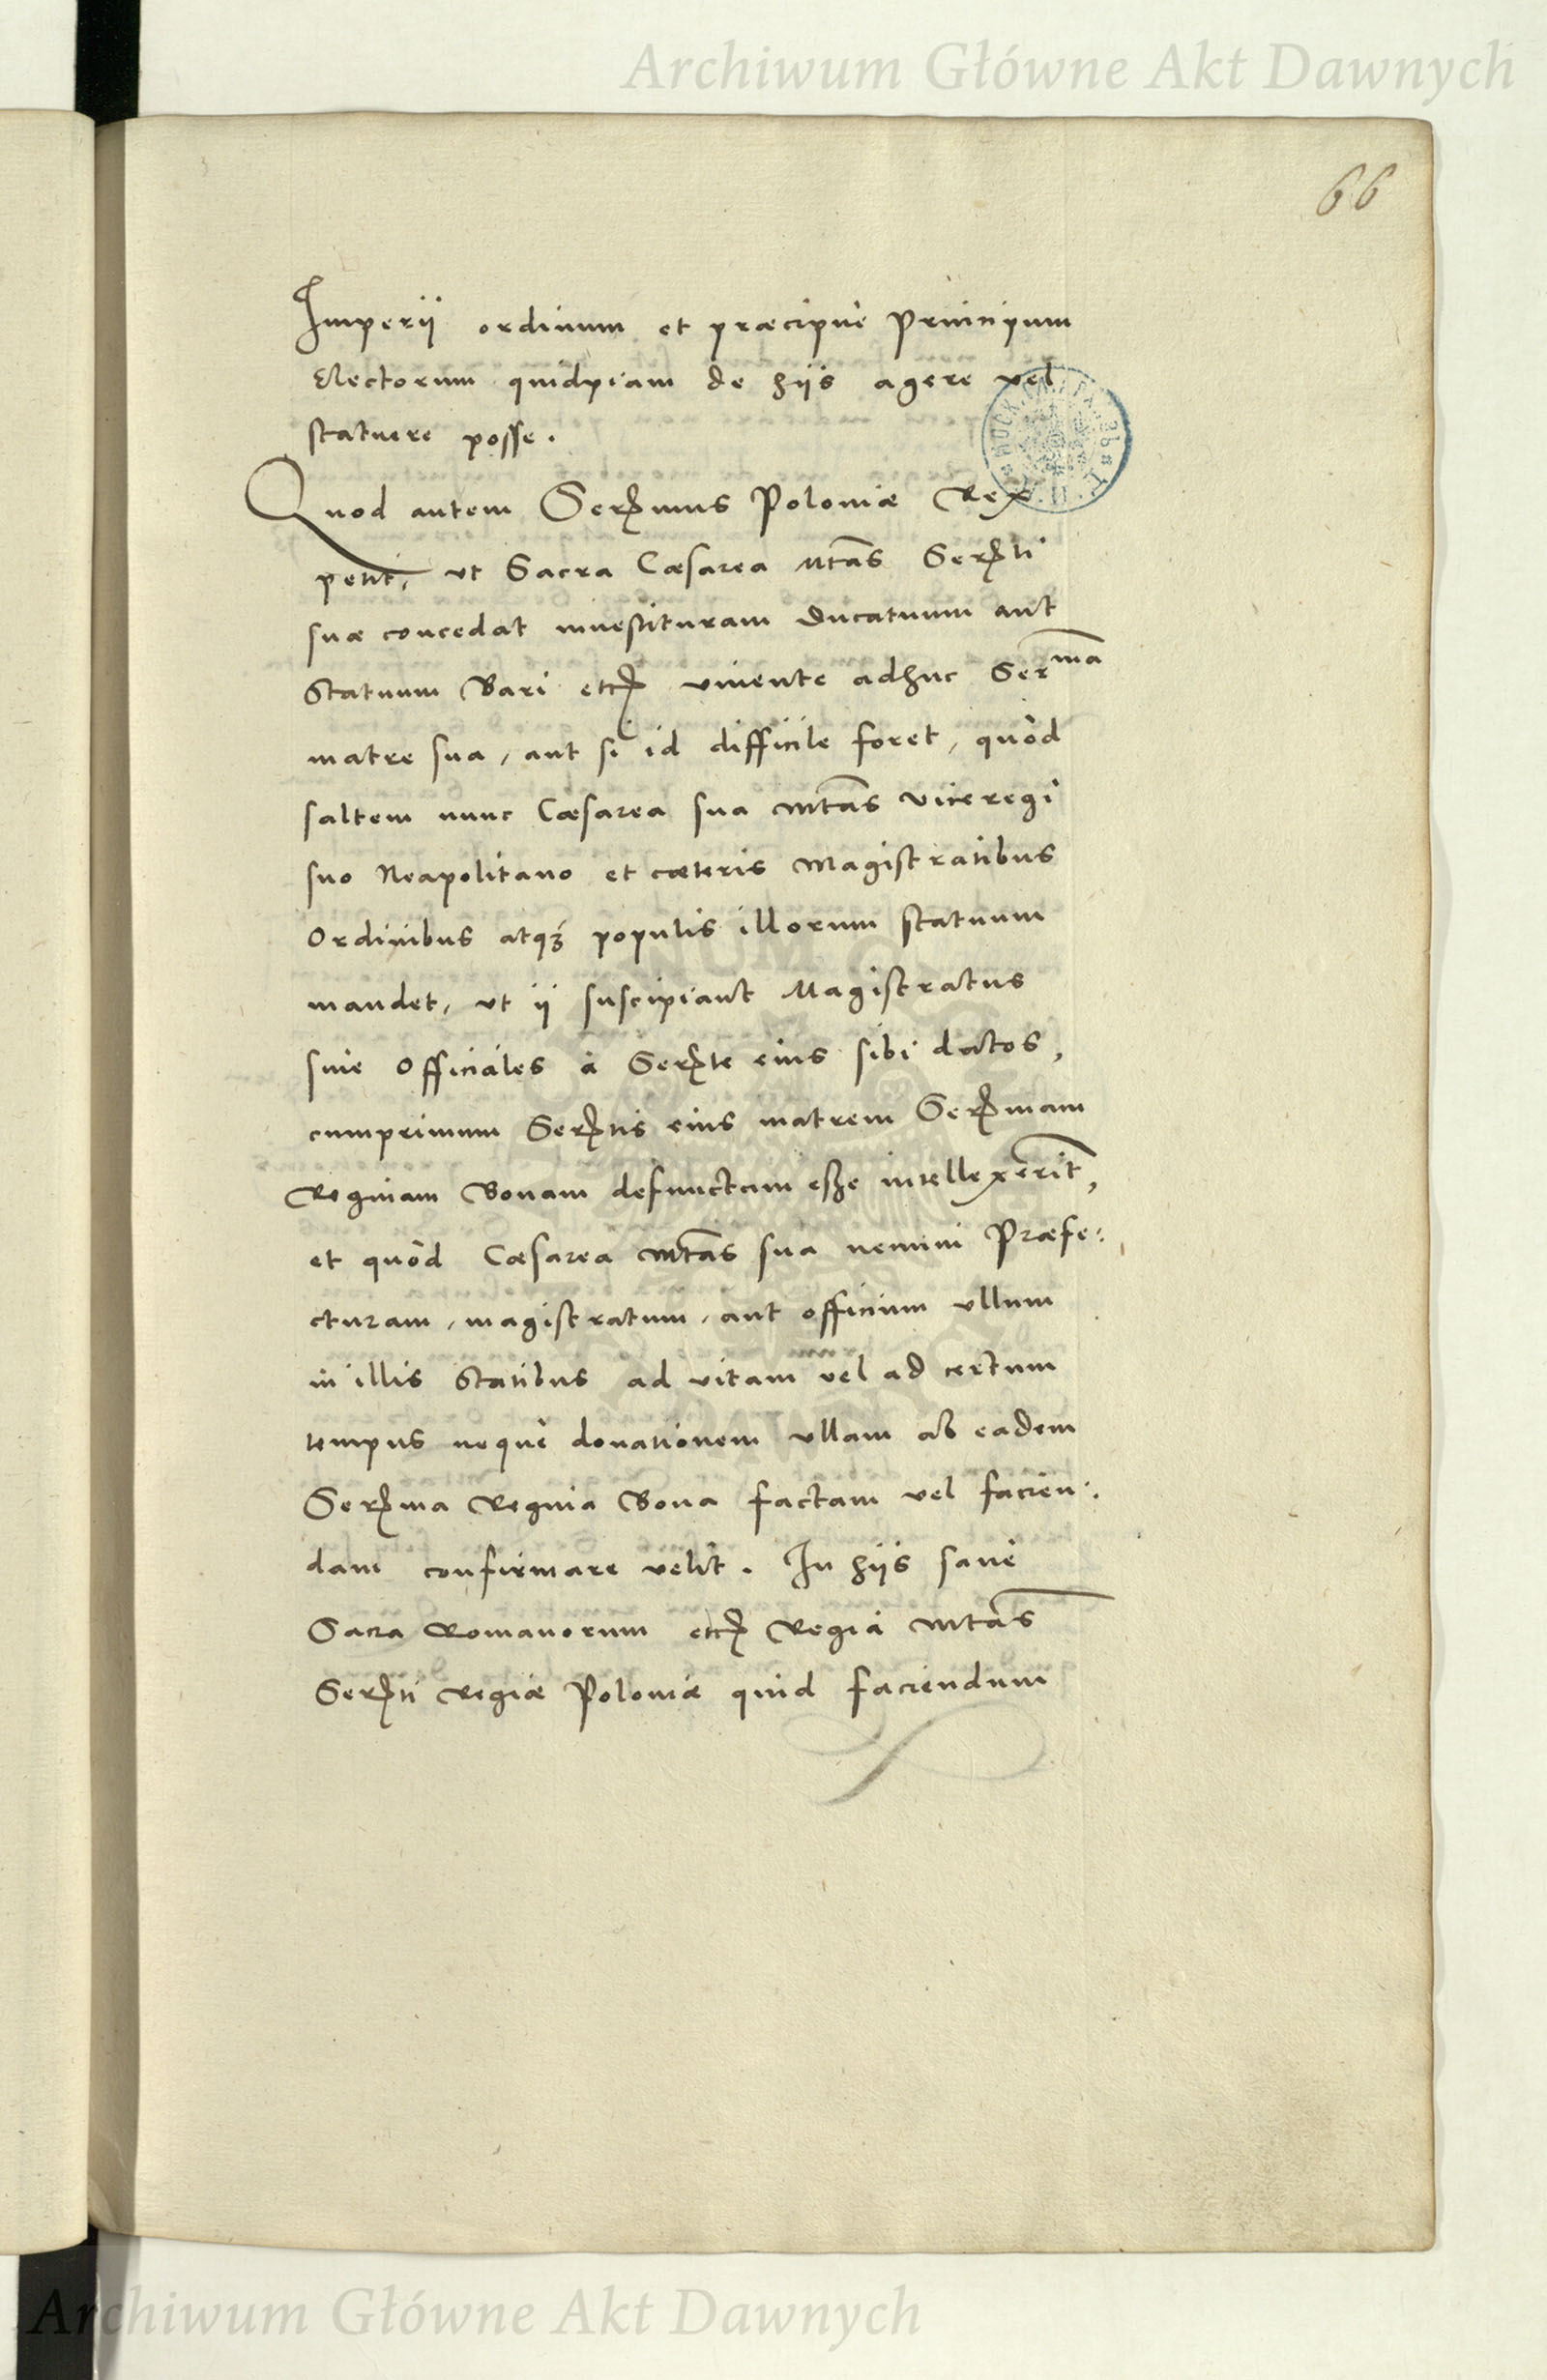 Archiwum Główne Akt Dawnych
66
Imperij ordinum et præcipuè Principum
Electorum quidpiam de hijs agere vel
statuere posse.
Quod autem Serꝑmus Poloniæ Rex
petit, ut Sacra Cæsarea Mtas Serꝑti
suæ concedat inuestituram Ducatuum aut
Statuum Bari etcꝑ viuente adhuc Serma
matre sua, aut si id difficile foret, quòd
saltem nunc Cæsarea sua Mtas Viceregi
suo Neapolitano et cæteris Magistratibus
Ordinibus atqꝫ populis illorum statuum
mandet, ut ij suscipiant Magistratus
siue Officiales à Serꝑte eius sibi datos,
cumprimum Serꝑtis eius matrem Serꝑmam
Reginam Bonam defunctam esse intellexerit,
et quòd Cæsarea Mtas sua nemini Præfe:
cturam, magistratum, aut officium ullum
in illis Statibus ad vitam vel ad certum
tempus neque donationem ullam ab eadem
Serꝑma Regina Bona factam vel facien:
dam confirmare velit. In hijs sanè
Sacra Romanorum etcꝑ Regia Mtas
Serꝑti Regiæ Poloniæ quid faciendum
Archiwum Główne Akt Dawnych